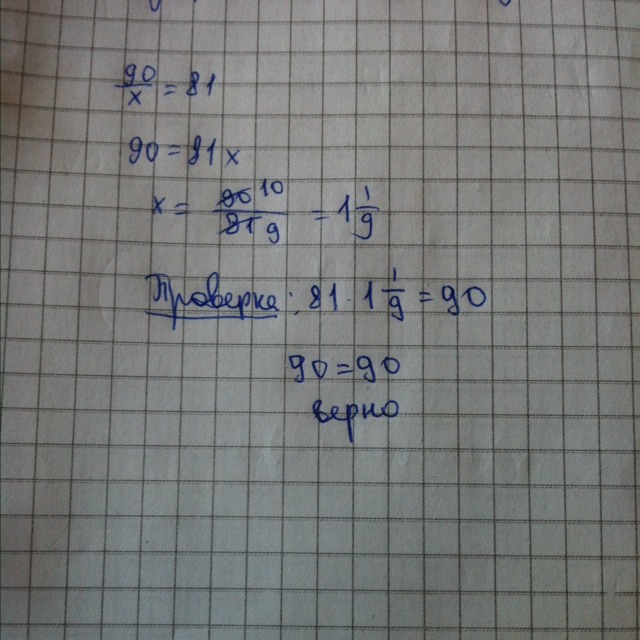 90/x = 81
90 = 81 x
x = 90 10 / 81 9 = 1 1/9
Проверка: 81 · 1 1/9 = 90
90 = 90
верно